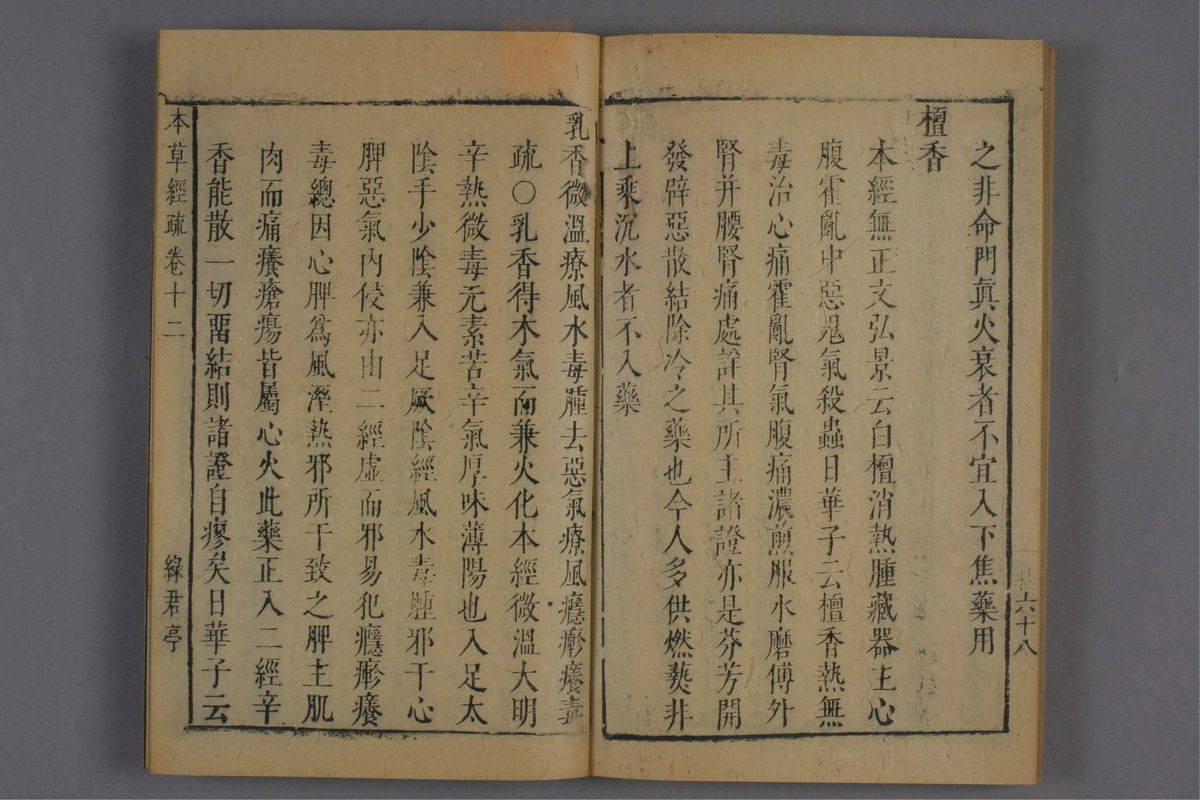 六十八
之非命門眞火衰者不宜入下焦藥用
檀香
本經無正文弘景云白檀消熱腫藏器主心
腹霍亂中惡鬼氣殺蟲日華子云檀香熱無
毒治心痛霍亂腎氣腹痛濃煎服水磨傅外
腎并腰腎痛處詳其所主諸證亦是芬芳開
發辟惡散結除冷之藥也今人多供燃爇非
上乘沉水者不入藥
乳香微溫療風水毒腫去惡氣療風癮㾦癢毒
疏〇乳香得木氣而兼火化本經微溫大明
辛熱微毒元素苦辛氣厚味薄陽也入足太
陰手少陰兼入足厥陰經風水毒腫邪干心
脾惡氣內侵亦由二經虛而邪易犯癮㾦癢
毒總因心脾爲風溼熱邪所干致之脾主肌
肉而痛癢瘡瘍皆屬心火此藥正入二經辛
香能散一切畱結則諸證自瘳矣日華子云
本草經疏 卷十二 綠君亭